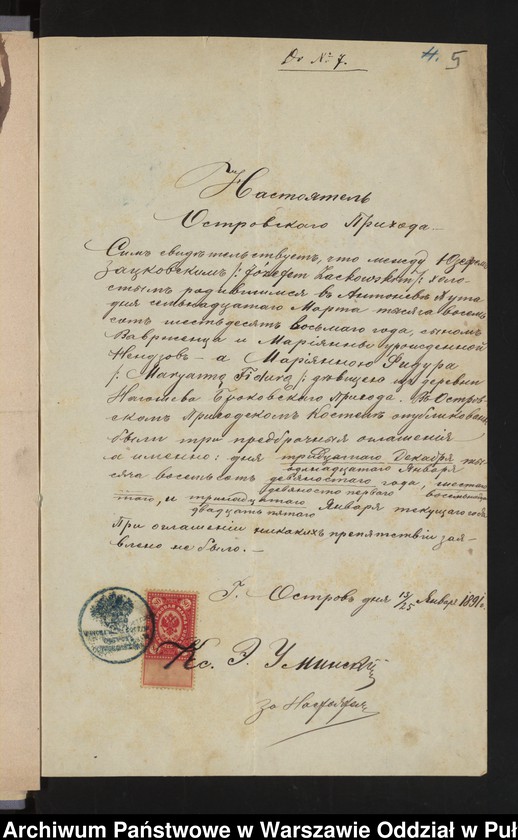 Dr № 7.
4. 5
Настоятель
Островского Прихода
Симъ свидѣтельствуетъ, что между Юзефомъ
Зацковскимъ /: Józefem Zackowskim :/ холо-
стымъ родившимся въ Антоніевѣ Гута
дня семьнадцатаго Марта тысяча восемь
сотъ шестьдесятъ восьмаго года, сыномъ
Вавржинца и Маріянны урожденной
а Маріянною Фидура
/: Maryanną Fidurą :/ дѣвицею изъ деревни
Нагошева Броковскаго Прихода. Въ Остров-
скомъ Приходскомъ Костелѣ опубликованы
были три предбрачныя оглашенія
а именно: дня тридцатаго Декабря ты-
одиннадцатаго Января
сяча восемьсотъ девяностаго года, шестаго
девяносто перваго восемнад-
таго, и тринадцатаго Января текущаго года.
двадцать пятаго
При оглашеніи никакихъ препятствій зая-
влено не было. —
Г. Островъ дня 13/25 Января 1891 г.
Кс. Уминскій
за Настоятеля
Archiwum Państwowe w Warszawie Oddział w Puł